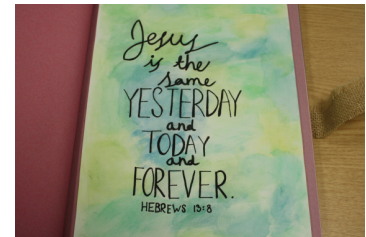 Jesus
is the
same
YESTERDAY
and
TODAY
and
FOREVER.
HEBREWS 13:8